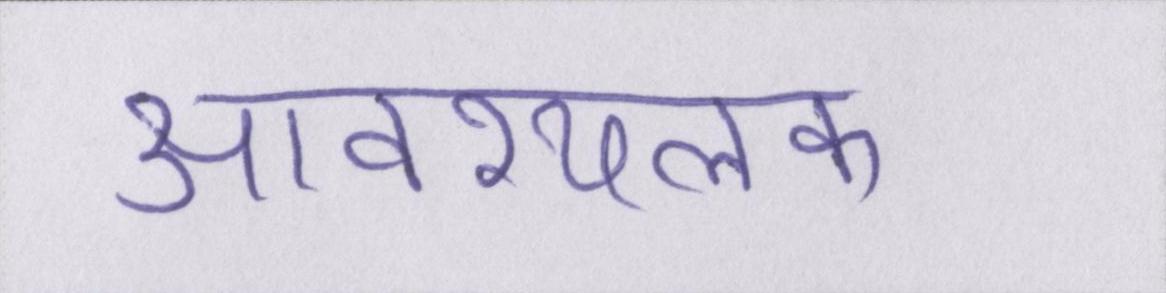 आवश्यलक